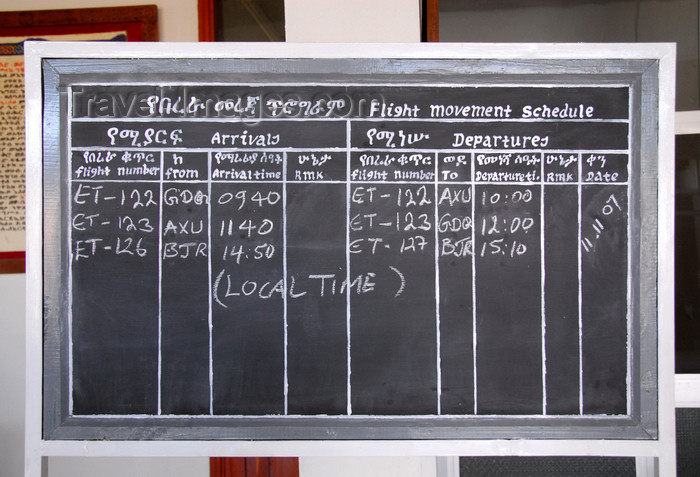 Travel-Images.com
የበረራ መረጃ ፕሮግራም Flight movement Schedule
የሚያርፍ Arrivals የሚነሡ Departures
የበረራ ቁጥር ከ የማረፊያ ሰዓት ሁኔታ የበረራ ቁጥር ወደ የመነሻ ሰዓት ሁኔታ ቀን
flight number from Arrival time RMK flight number To Departure ti. RMK Date
ET-122 GDQ 0940 ET-122 AXU 10:00
ET-123 AXU 1140 ET-123 GDQ 12:00 11.11.07
ET-126 BJR 14:50 ET-127 BJR 15:10
(LOCAL TIME )